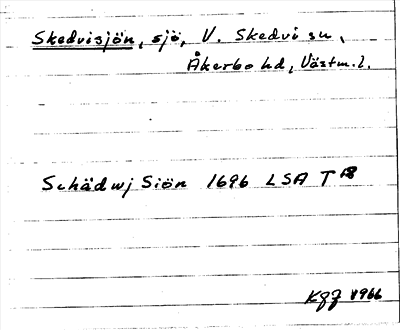 Skedvisjön, sjö, V. Skedvi sn,
Åkerbo hd, Västm.l.
Schädwj Siön 1696 LSA T
1966